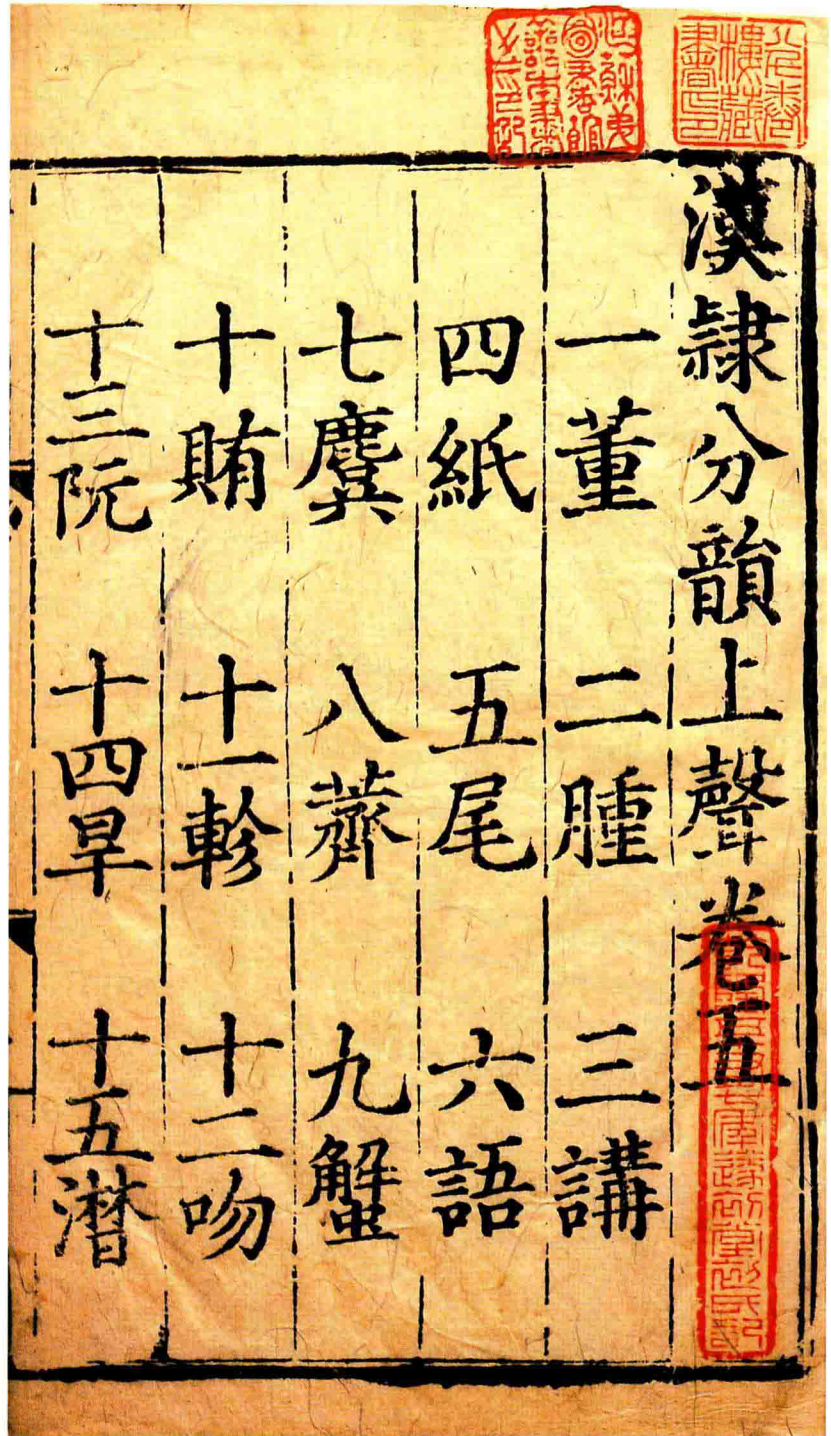 漢隷分韻上聲卷五
一董 二腫 三講
四紙 五尾 六語
七麌 八薺 九蟹
十賄 十一軫 十二吻
十三阮 十四旱 十五潸